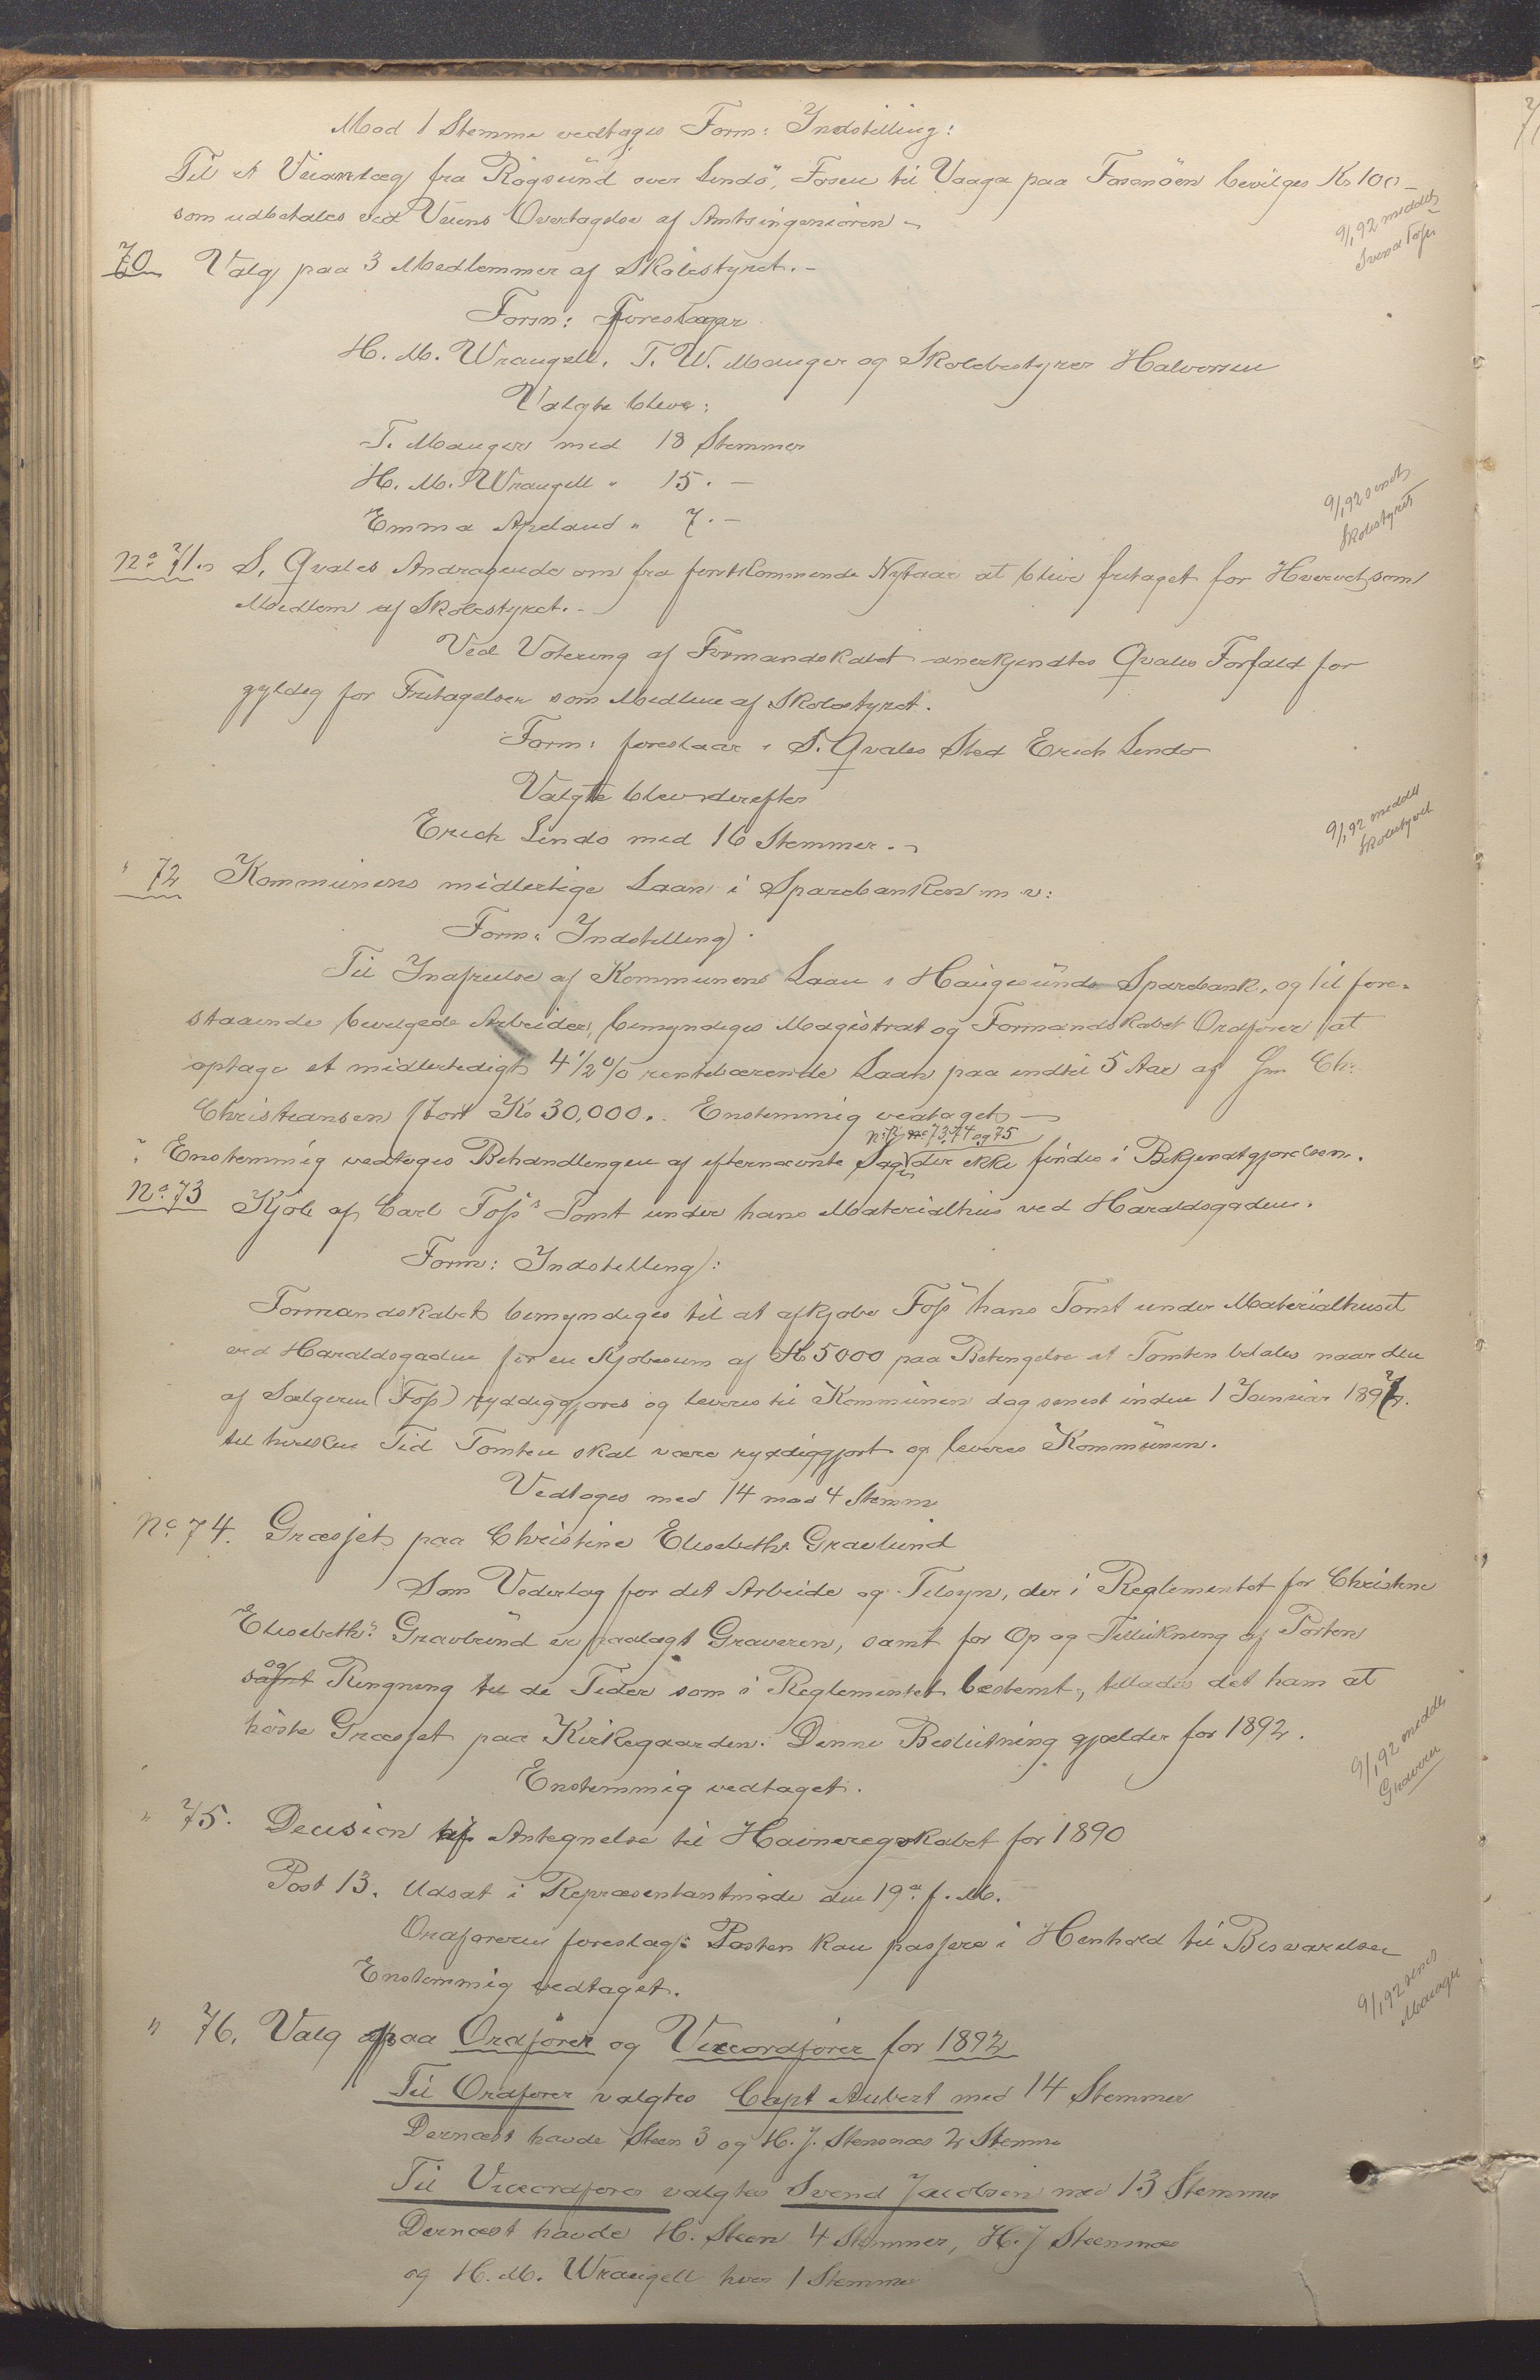 Mod 1 Stemme vedtages Form: Indstilling:
Til et Veianlæg fra Røgsund over Lindø, Fosen til Vaaga paa Fosenøen bevilges Kr 100 -
som udbetales ved Veiens Overtagelse af Amtsingeniøren -
9/1 92 meddelt
Svend Foss
70 Valg paa 3 Medlemmer af Skolestyret. -
Form: foreslaar
H. M. Wrangell, T. W. Mauger og Skolebestyrer Halvorsen
Valgte bleve:
T. Mauger med 18 Stemmer
H. M. Wrangell " 15. -
Emma Apeland " 7. -
9/1 92 sendt
Skolestyret
No 71. S. Qvales Andragende om fra førstkommende Nytaar at blive fritaget for Hvervet som
Medlem af Skolestyret. -
Ved Votering af Formandskabet anerkjendtes Qvales Forfald for
gyldig for Fritagelsen som Medlem af Skolestyret.
Form: foreslaar i S. Qvales Sted Erich Lindø
Valgte blev derefter
Erich Lindø med 16 Stemmer. -
9/1 92 meddelt
Skolestyret
" 72 Kommunens midlertige Laan i Sparebanken m v:
Form: Indstilling.
Til Indfrielse af Kommunens Laan i Haugesunds Sparebank, og til fore-
staaende bevilgede Arbeider, bemyndiges Magistrat og Formandskabet Ordfører at
optage et midlertidigt 4 1/2 % rentebærende Laan paa indtil 5 Aar af Chr.
Christiansen stort Kr 30,000. Enstemmig vedtaget -
No 73, 74 og 75
" Enstemmig vedtoges Behandlingen af efternævnte Sager der ikke findes i Bekjendtgjørelsen.
No 73 Kjøb af Carl Foss's Tomt under hans Materialhus ved Haraldsgaden.
Form: Indstilling:
Formandskabet bemyndiges til at afkjøbe Foss hans Tomt under Materialhuset
ved Haraldsgaden for en Kjøbesum af Kr 5000 paa Betingelse at Tomten betales naar den
af Sælgeren (Foss) ryddiggjøres og leveres til Kommunen dog senest inden 1 Januar 1897.
til hvilken Tid Tomten skal være ryddiggjort og leveres Kommunen.
Vedtoges med 14 mod 4 Stemme
No 74. Græsset paa Christine Elisabeths Gravlund
Som Vederlag for det Arbeide og Tilsyn, der i Reglementet for Christine
Elisabeths Gravlund er paalagt Graveren, samt for Op og Tillukning af Porten
og samt Ringning til de Tider som i Reglementet bestemt, tillades det ham at
høste Græsset paa Kirkegaarden. Denne Beslutning gjælder for 1892.
9/1 92 meddelt
Graveren
Enstemmig vedtaget.
" 75. Decision af Antegnelse til Havneregnskabet for 1890
Post 13. Udsat i Repræsentantmøde den 19de f. M.
Ordførerens foreslag: Posten kan passere i Henhold til Besvarelsen
Enstemmig vedtaget.
9/1 92 sendt
Mauger
" 76. Valg paa Ordfører og Viceordfører for 1892
Til Ordfører valgtes Capt Aubert med 14 Stemmer
Dernæst havde Steen 3 og H. J. Stensnæs 2 Stemme
Til Viceordfører valgtes Svend Jacobsen med 13 Stemmer
Dernæst havde H. Steen 4 Stemmer, H. J Steensnæs
og H. M. Wrangell hver 1 Stemme